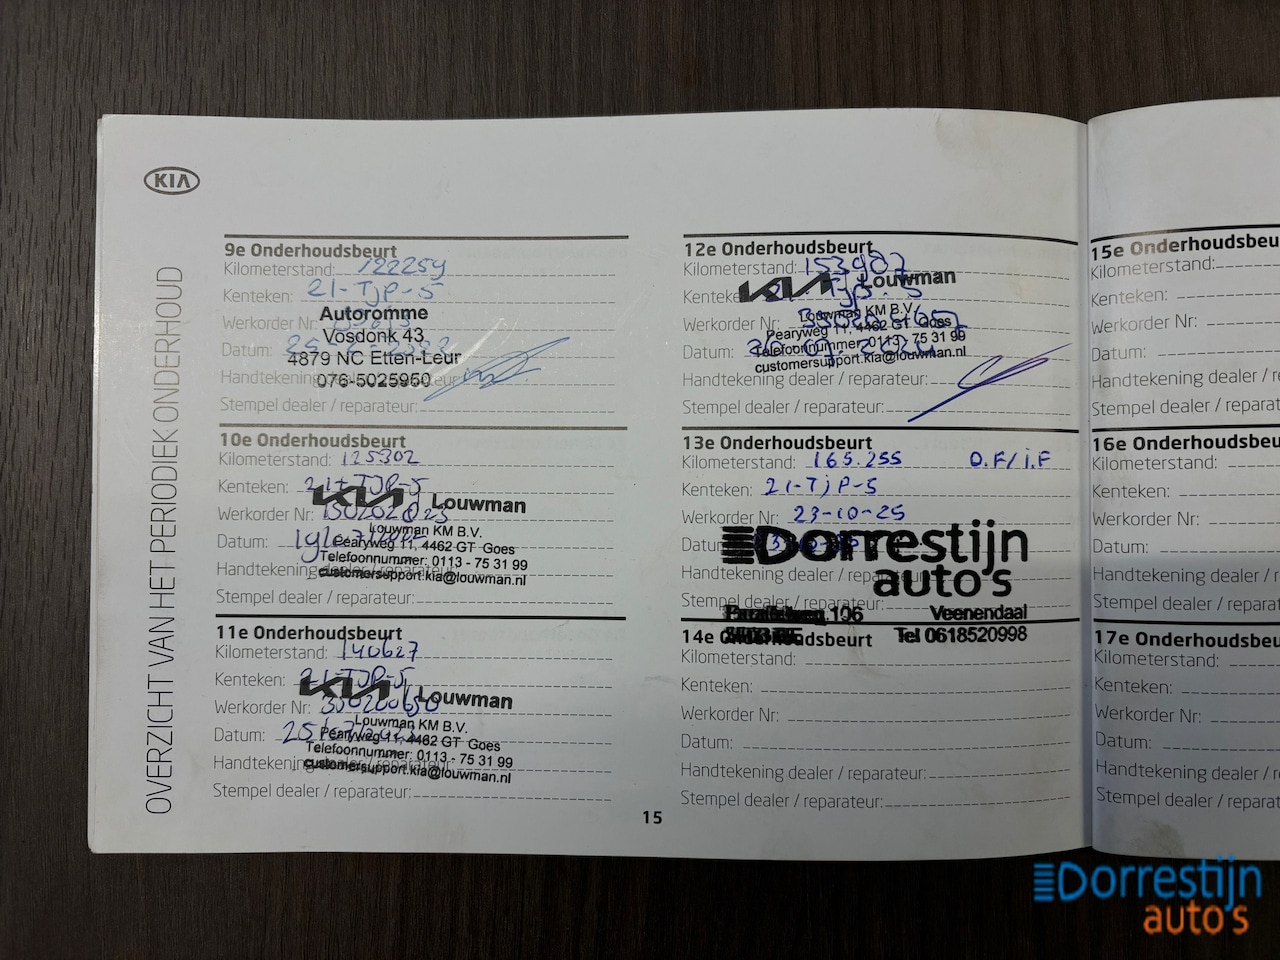 KIA
OVERZICHT VAN HET PERIODIEK ONDERHOUD
9e Onderhoudsbeurt
Kilometerstand: 122259
Kenteken: 21-TJP-5
Werkorder Nr:
Autoromme
Vosdonk 43
Datum:
4879 NC Etten-Leur
Handtekening dealer / reparateur:
076-5025950
Stempel dealer / reparateur:
10e Onderhoudsbeurt
Kilometerstand: 125302
Kenteken: 21-TJP-5
KIA Louwman
Werkorder Nr:
Louwman KM B.V.
Datum:
Pearyweg 11, 4462 GT Goes
Telefoonnummer: 0113 - 75 31 99
Handtekening dealer / reparateur:
customersupport.kia@louwman.nl
Stempel dealer / reparateur:
11e Onderhoudsbeurt
Kilometerstand: 140627
Kenteken: 21-TJP-5
KIA Louwman
Werkorder Nr:
Louwman KM B.V.
Datum:
Pearyweg 11, 4462 GT Goes
Telefoonnummer: 0113 - 75 31 99
Handtekening dealer / reparateur:
customersupport.kia@louwman.nl
Stempel dealer / reparateur:
12e Onderhoudsbeurt
Kilometerstand: 153987
Kenteken:
KIA Louwman
Werkorder Nr:
Louwman KM B.V.
Pearyweg 11, 4462 GT Goes
Datum:
Telefoonnummer: 0113 - 75 31 99
customersupport.kia@louwman.nl
Handtekening dealer / reparateur:
Stempel dealer / reparateur:
13e Onderhoudsbeurt
Kilometerstand: 165.255 O.F/i.F
Kenteken: 21-TjP-5
Werkorder Nr: 23-10-25
Datum:
Dorrestijn
auto's
Handtekening dealer / reparateur:
Stempel dealer / reparateur:
106 Veenendaal
Tel. 0618520998
14e Onderhoudsbeurt
Kilometerstand:
Kenteken:
Werkorder Nr:
Datum:
Handtekening dealer / reparateur:
Stempel dealer / reparateur:
15
15e Onderhoudsbeu
Kilometerstand:
Kenteken:
Werkorder Nr:
Datum:
Handtekening dealer / r
Stempel dealer / reparat
16e Onderhoudsbeu
Kilometerstand:
Kenteken:
Werkorder Nr:
Datum:
Handtekening dealer / r
Stempel dealer / reparat
17e Onderhoudsbeu
Kilometerstand:
Kenteken:
Werkorder Nr:
Datum:
Handtekening dealer / r
Stempel dealer / reparat
Dorrestijn
auto's